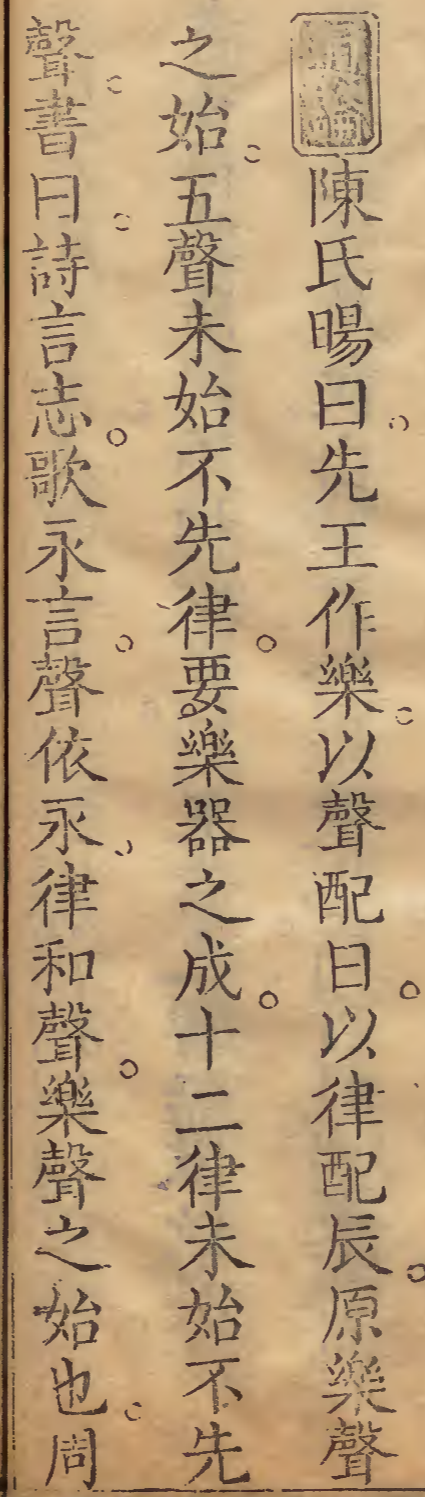 陳氏暘曰先王作樂以聲配日以律配辰原樂聲
之始五聲未始不先律要樂器之成十二律未始不先
聲書曰詩言志歌永言聲依永律和聲樂聲之始也周